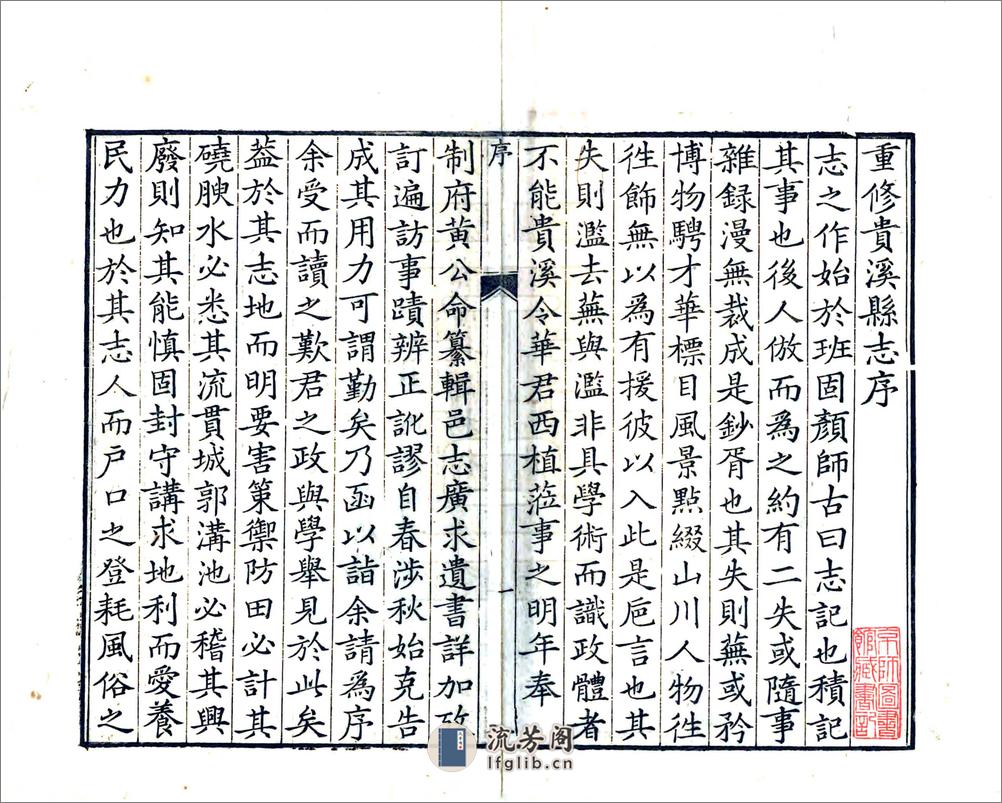 重修貴溪縣志序
志之作始於班固顏師古曰志記也積記
其事也後人倣而為之約有二失或隨事
雜録漫無裁成是鈔胥也其失則蕪或矜
博物騁才華標目風景點綴山川人物徃
徃飾無以為有援彼以入此是巵言也其
失則濫去蕪與濫非具學術而識政體者
不能貴溪令華君西植蒞事之明年奉
序
一
制府黄公命纂輯邑志廣求遺書詳加攷
訂遍訪事蹟辨正訛謬自春涉秋始克告
成其用力可謂勤矣乃函以詣余請為序
余受而讀之歎君之政與學舉見於此矣
葢於其志地而明要害策禦防田必計其
磽腴水必悉其流貫城郭溝池必稽其興
廢則知其能慎固封守講求地利而愛養
民力也於其志人而戸口之登耗風俗之
京師圖書
館藏書記
流芳阁
lfglib.cn